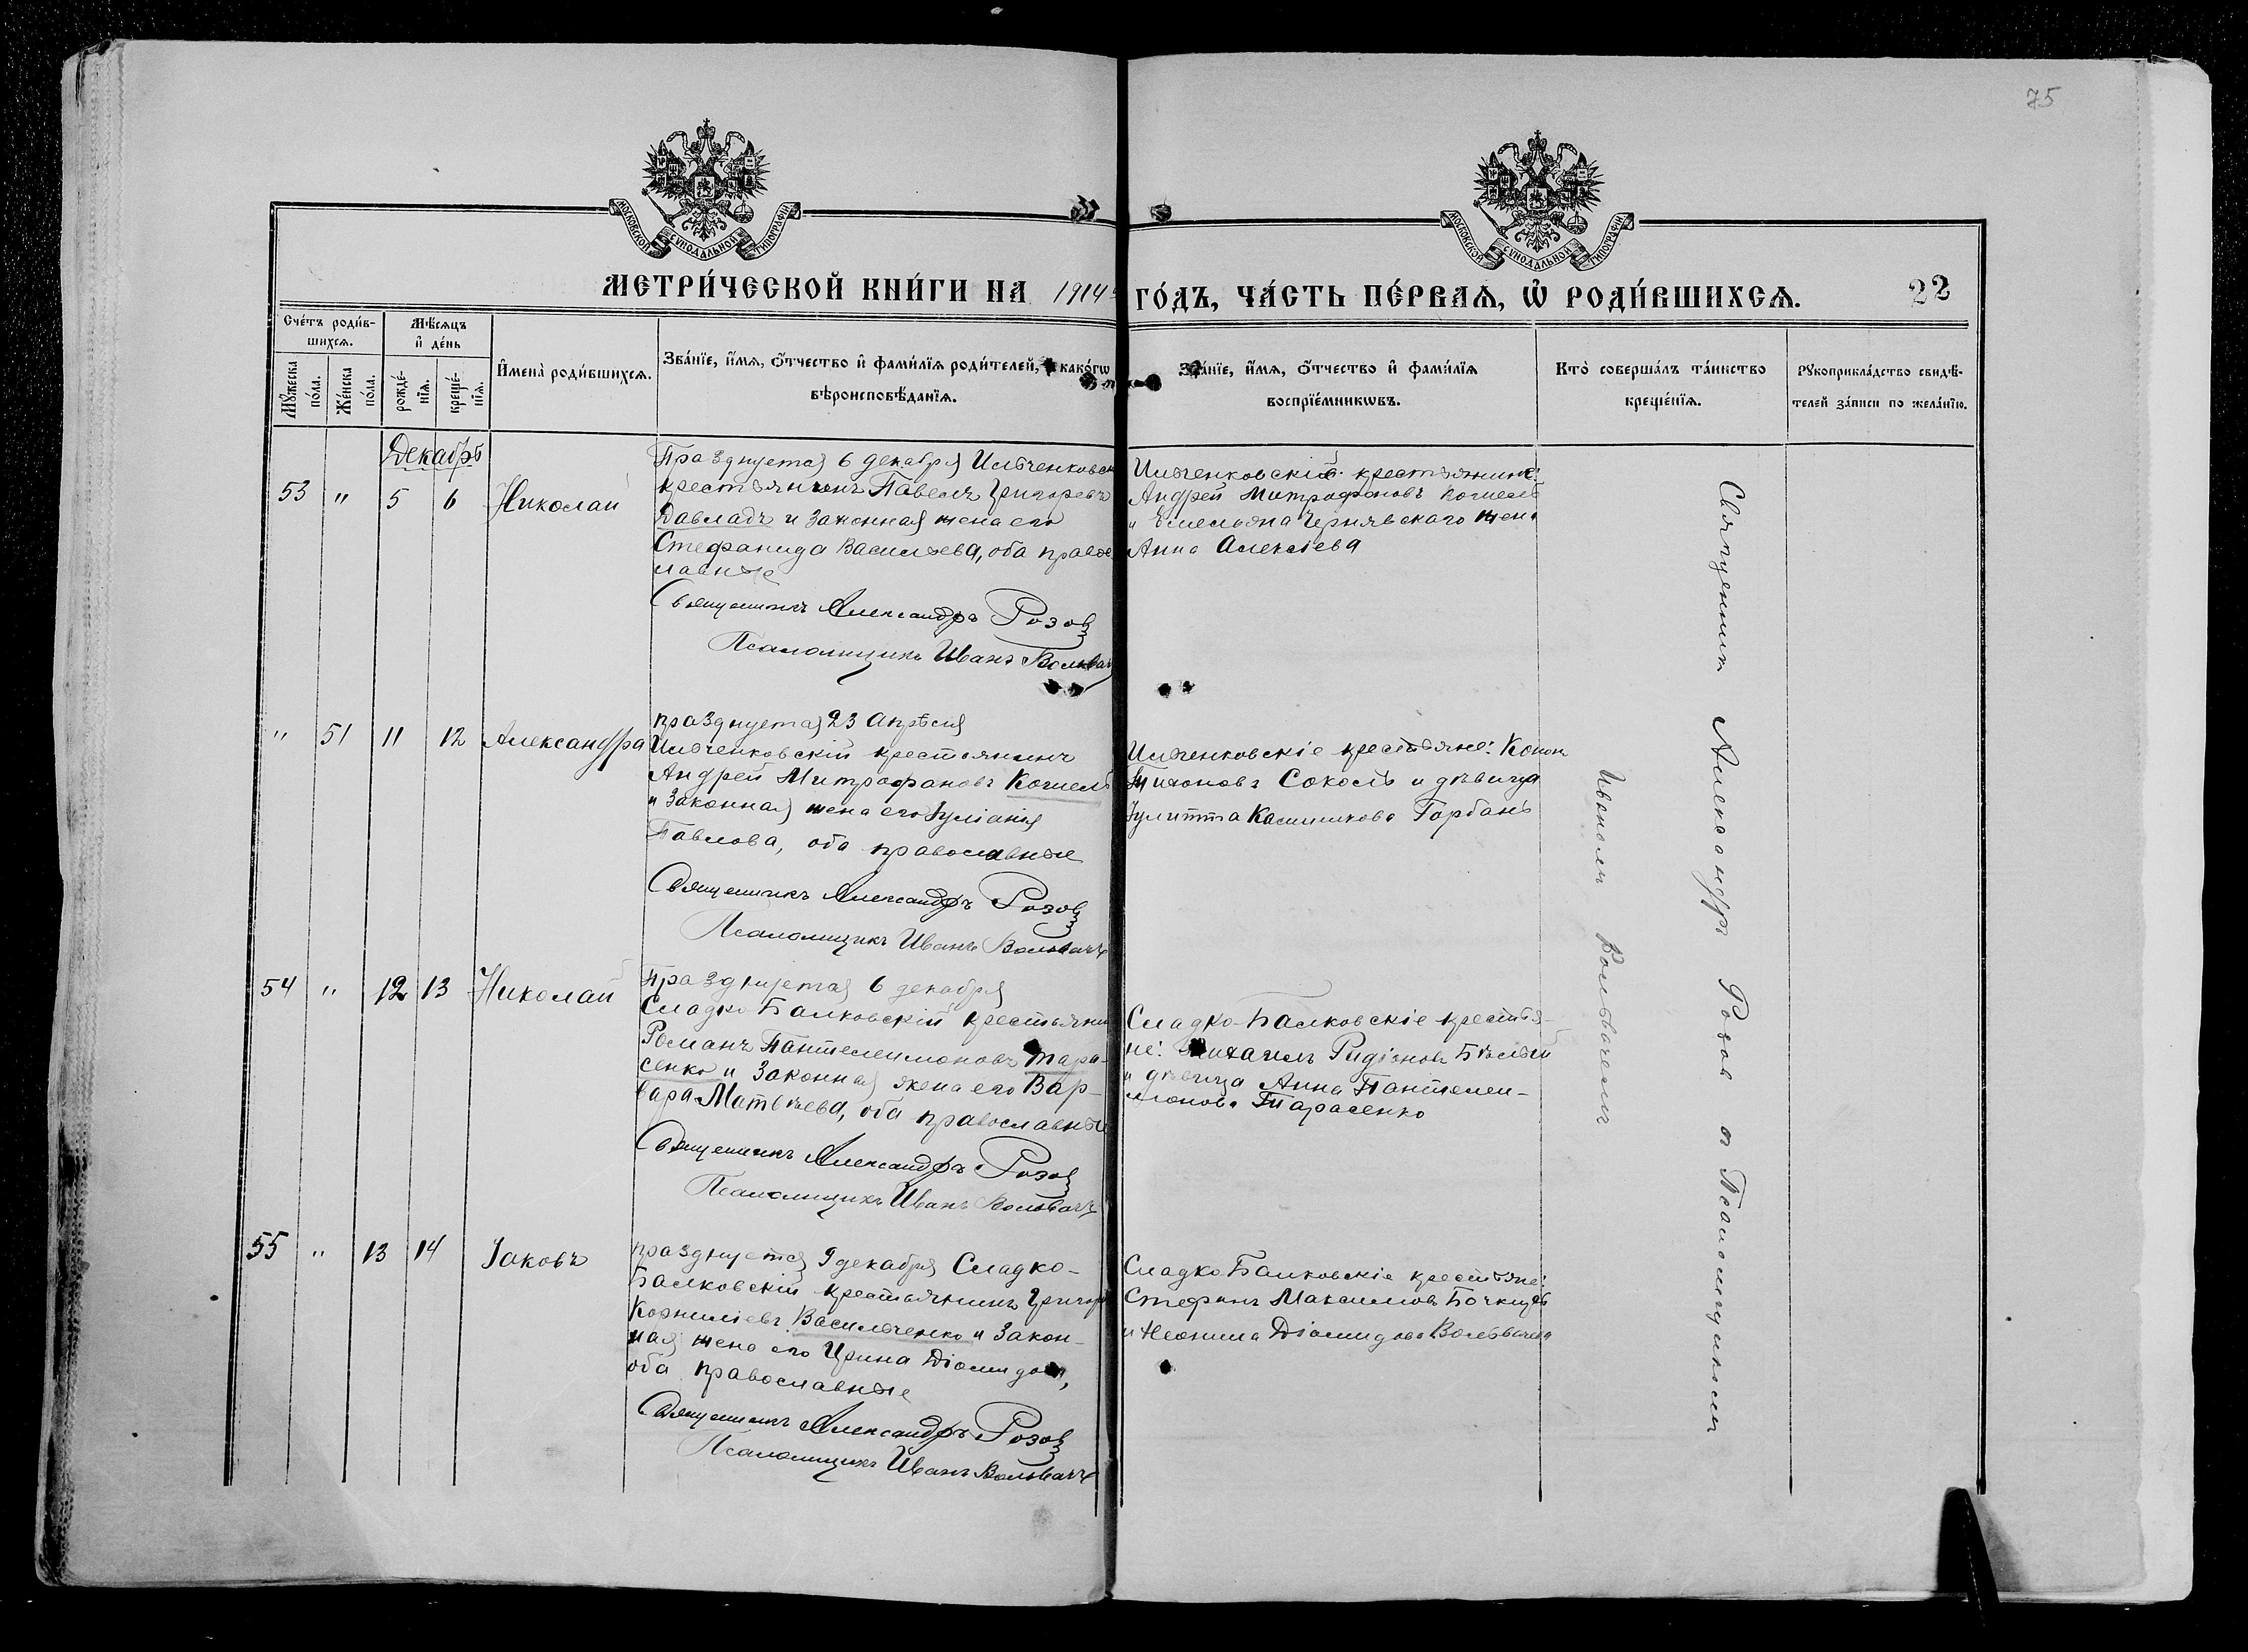 75
МОСКОВСКОЙ СУНОДАЛЬНОЙ ТИПОГРАФІИ
МОСКОВСКОЙ СУНОДАЛЬНОЙ ТИПОГРАФІИ
МЕТРИ́ЧЕСКОЙ КНИ́ГИ НА 1914й ГО́ДЪ, ЧА́СТЬ ПЕ́РВАѦ, Ѡ҆ РОДИ́ВШИХСѦ.
22
Сче́тъ роди́в-
шихсѧ.
Мꙋ́жеска по́ла.
Же́нска по́ла.
Мѣ́сѧцъ
и҆ де́нь
рожде́-
нїѧ.
креще́-
нїѧ.
И҆мена̀ роди́вшихсѧ.
Зва́нїе, и҆́мѧ, ѻ҆́тчество и҆ фами́лїѧ роди́телей, и҆ како́гѡ
вѣроисповѣ́данїѧ.
Зва́нїе, и҆́мѧ, ѻ҆́тчество и҆ фами́лїѧ
воспрїе́мникѡвъ.
Кто̀ соверша́лъ та́инство
креще́нїѧ.
Рꙋкоприкла́дство свидѣ́-
телей за́писи по жела́нїю.
Декабрь
53 " 5 6 Николай
Празднуется 6 декабря Ильченковск
крестьянинъ Павелъ Григорьевъ
Давладъ и законная жена его
Стефанида Васильева, оба право
славные
Священникъ Александръ Розовъ
Псаломщикъ Иванъ Вольвачъ
Ильченковскій крестьянинъ
Андрей Митрофановъ Кошель
и Емельяна Чернявского жена
Анна Алексіева
" 51 11 12 Александра
празднуется 23 Апрѣля
Ильченковскій крестьянинъ
Андрей Митрофановъ Кошель
и законная жена его Іуліанія
Павлова, оба православные
Священникъ Александръ Розовъ
Псаломщикъ Иванъ Вольвачъ
Ильченковскіе крестьяне: Конон
Тихоновъ Соколъ и дѣвица
Іулитта Горбань
54 " 12 13 Николай
Празднуется 6 декабря
Сладко-Балковскій крестьянин
Романъ Пантелеимоновъ Тара-
сенко и законная жена его Вар-
вара Матвѣева, оба православные
Священникъ Александръ Розовъ
Псаломщикъ Иванъ Вольвачъ
Сладко-Балковскіе крестья-
не: Михаилъ Родіоновъ Бѣлый
и дѣвица Анна Пантелеи-
монова Тарасенко
55 " 13 14 Іаковъ
празднуется 9 декабря Сладко-
Балковскій крестьянинъ Григор
Корниліевъ Васильченко и закон-
ная жена его Ирина Діомидова,
оба православные
Священникъ Александръ Розовъ
Псаломщикъ Иванъ Вольвачъ
Сладко Балковскіе крестьяне:
Стефанъ Максимовъ
и Неонила Діомидова Вольвачева
Священник Александр Розов с Псаломщиком
Иваномъ Вольвачемъ